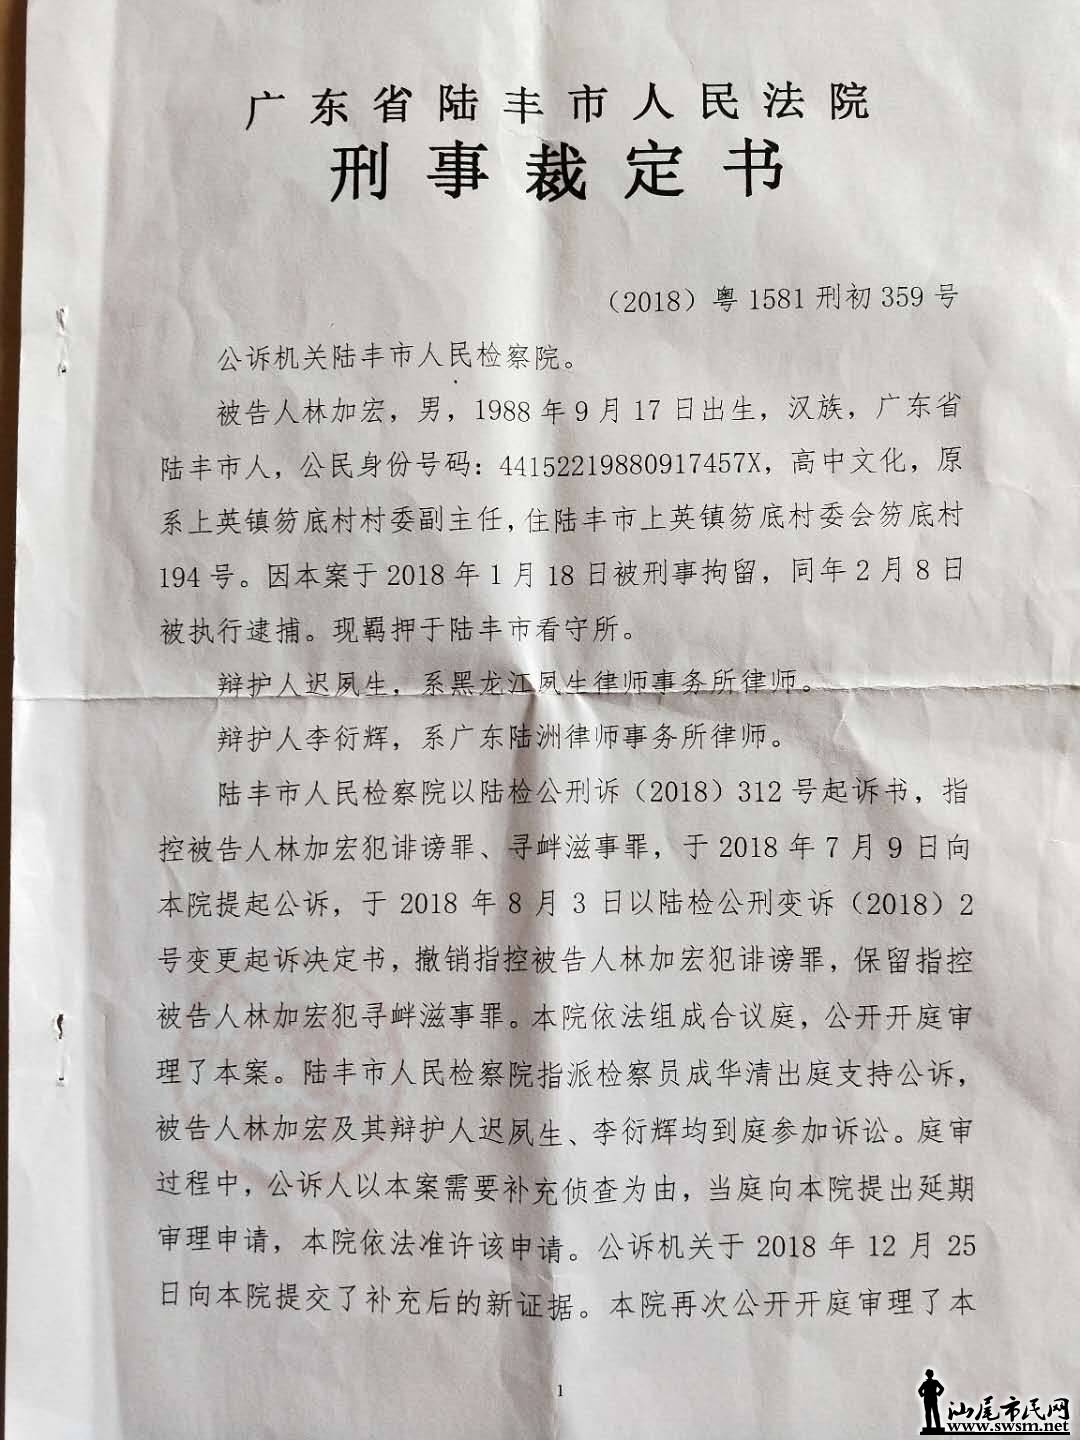 广东省陆丰市人民法院
刑事裁定书
（2018）粤1581刑初359号
公诉机关陆丰市人民检察院。
被告人林加宏，男，1988年9月17日出生，汉族，广东省
陆丰市人，公民身份号码：44152219880917457X，高中文化，原
系上英镇笏底村村委副主任，住陆丰市上英镇笏底村委会笏底村
194号。因本案于2018年1月18日被刑事拘留，同年2月8日
被执行逮捕。现羁押于陆丰市看守所。
辩护人迟夙生，系黑龙江夙生律师事务所律师。
辩护人李衍辉，系广东陆洲律师事务所律师。
陆丰市人民检察院以陆检公刑诉（2018）312号起诉书，指
控被告人林加宏犯诽谤罪、寻衅滋事罪，于2018年7月9日向
本院提起公诉，于2018年8月3日以陆检公刑变诉（2018）2
号变更起诉决定书，撤销指控被告人林加宏犯诽谤罪，保留指控
被告人林加宏犯寻衅滋事罪。本院依法组成合议庭，公开开庭审
理了本案。陆丰市人民检察院指派检察员成华清出庭支持公诉，
被告人林加宏及其辩护人迟夙生、李衍辉均到庭参加诉讼。庭审
过程中，公诉人以本案需要补充侦查为由，当庭向本院提出延期
审理申请，本院依法准许该申请。公诉机关于2018年12月25
日向本院提交了补充后的新证据。本院再次公开开庭审理了本
1
汕尾市民网
www.swsm.net